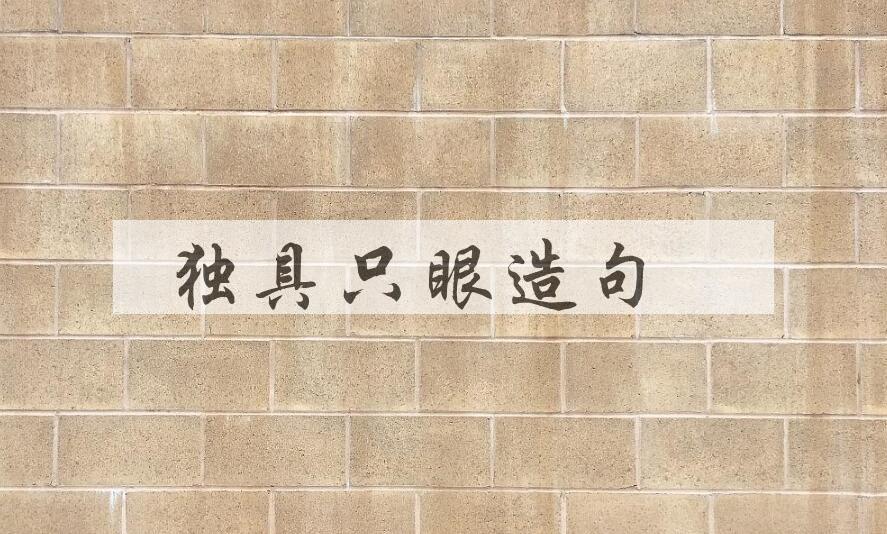 独具只眼造句